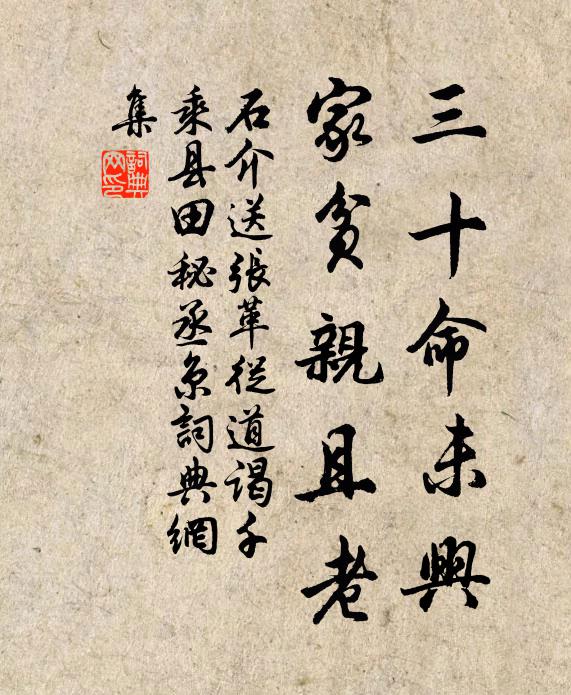 三十命未興
家貧親且老
石介送張革從道謁千
乘县田秘丞京詞典網
集
詞典
网印